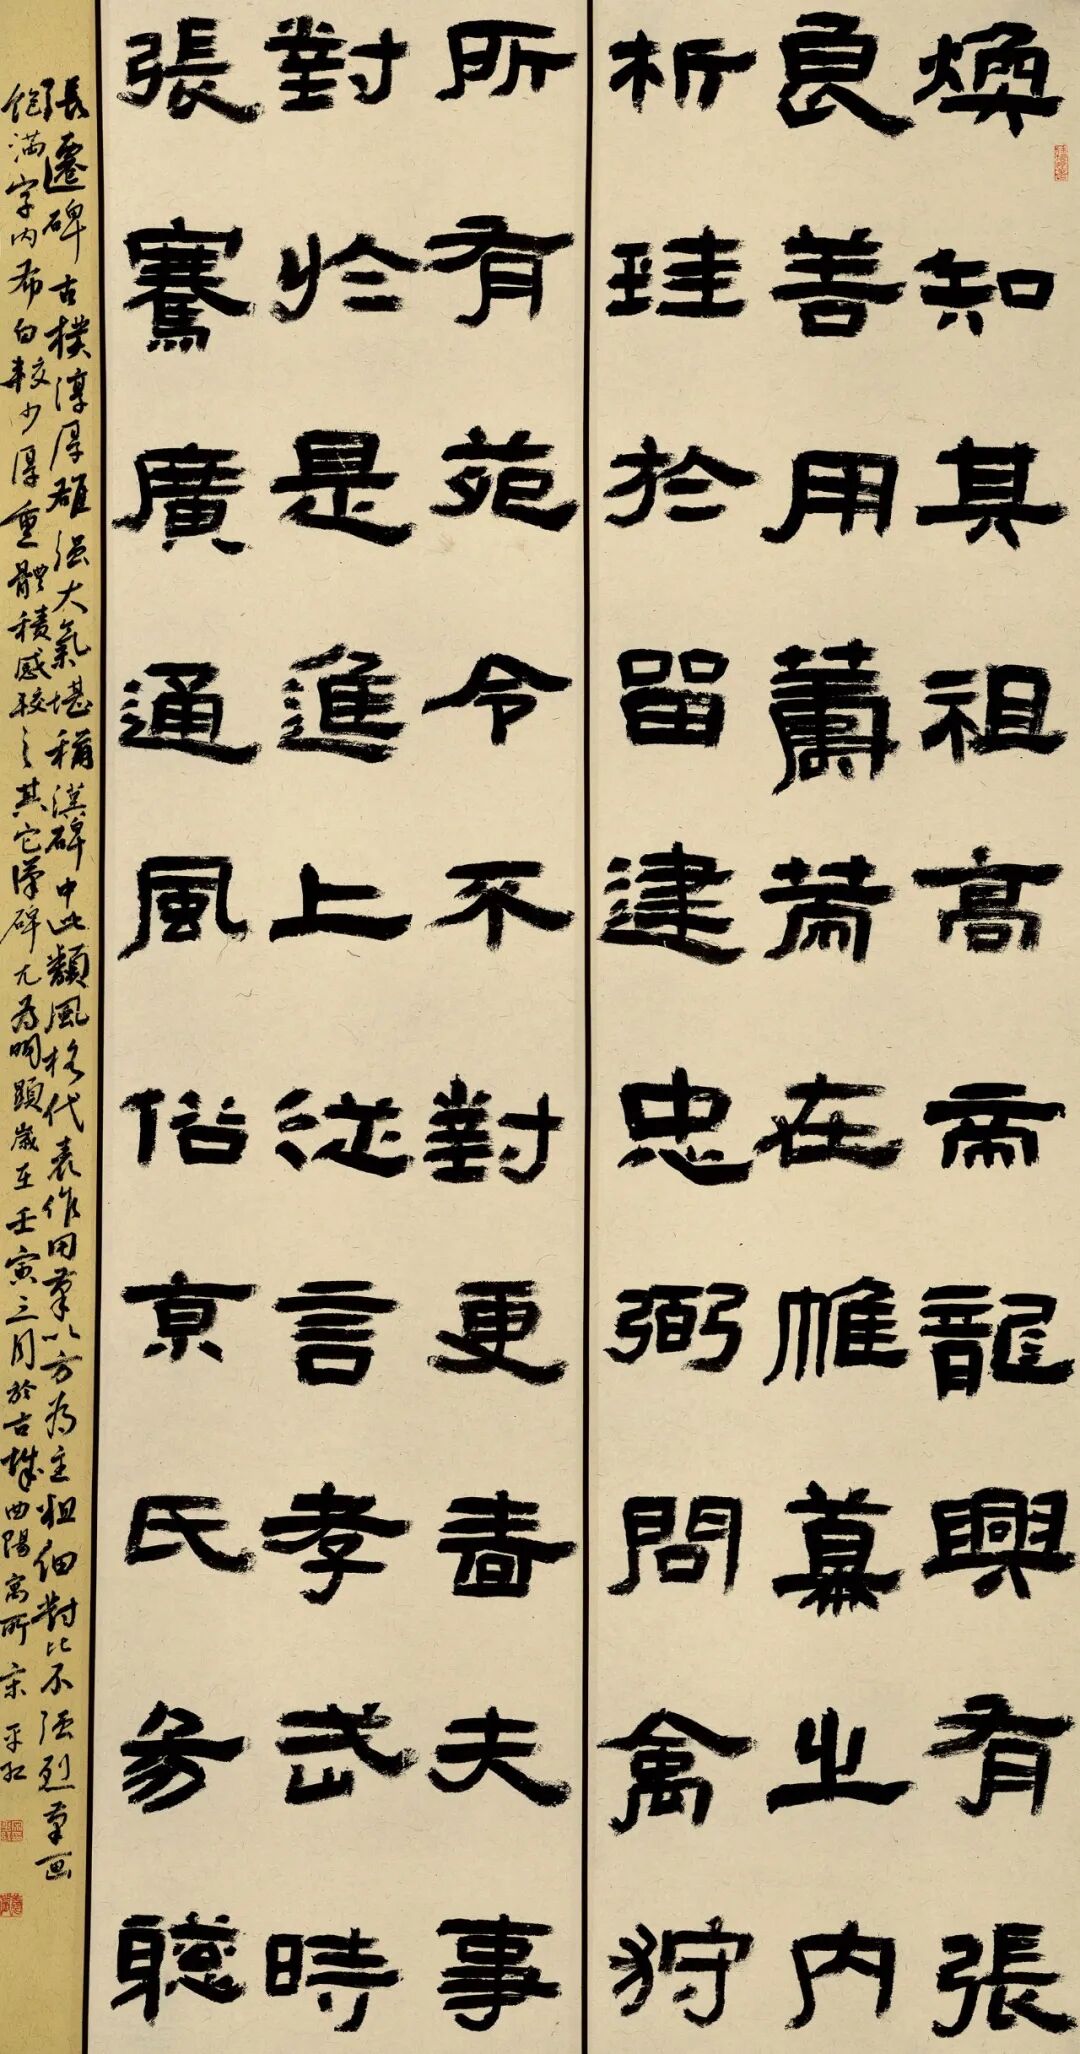 煥知其祖高帝龍興有張
良善用蕭苐在帷幕之内
析珪於留建忠弼問禽狩
所有苑令不對更嗇夫事
對於是進上從言孝武時
張騫廣通風俗京氏易聡
張遷碑古樸淳厚雄强大氣堪稱漢碑中此類風格代表作用筆以方為主粗细對比不强烈筆画
飽满字内布白較少厚重體積感較之其它漢碑尤為明顯歲在壬寅三月於古城曲陽寓所宋平